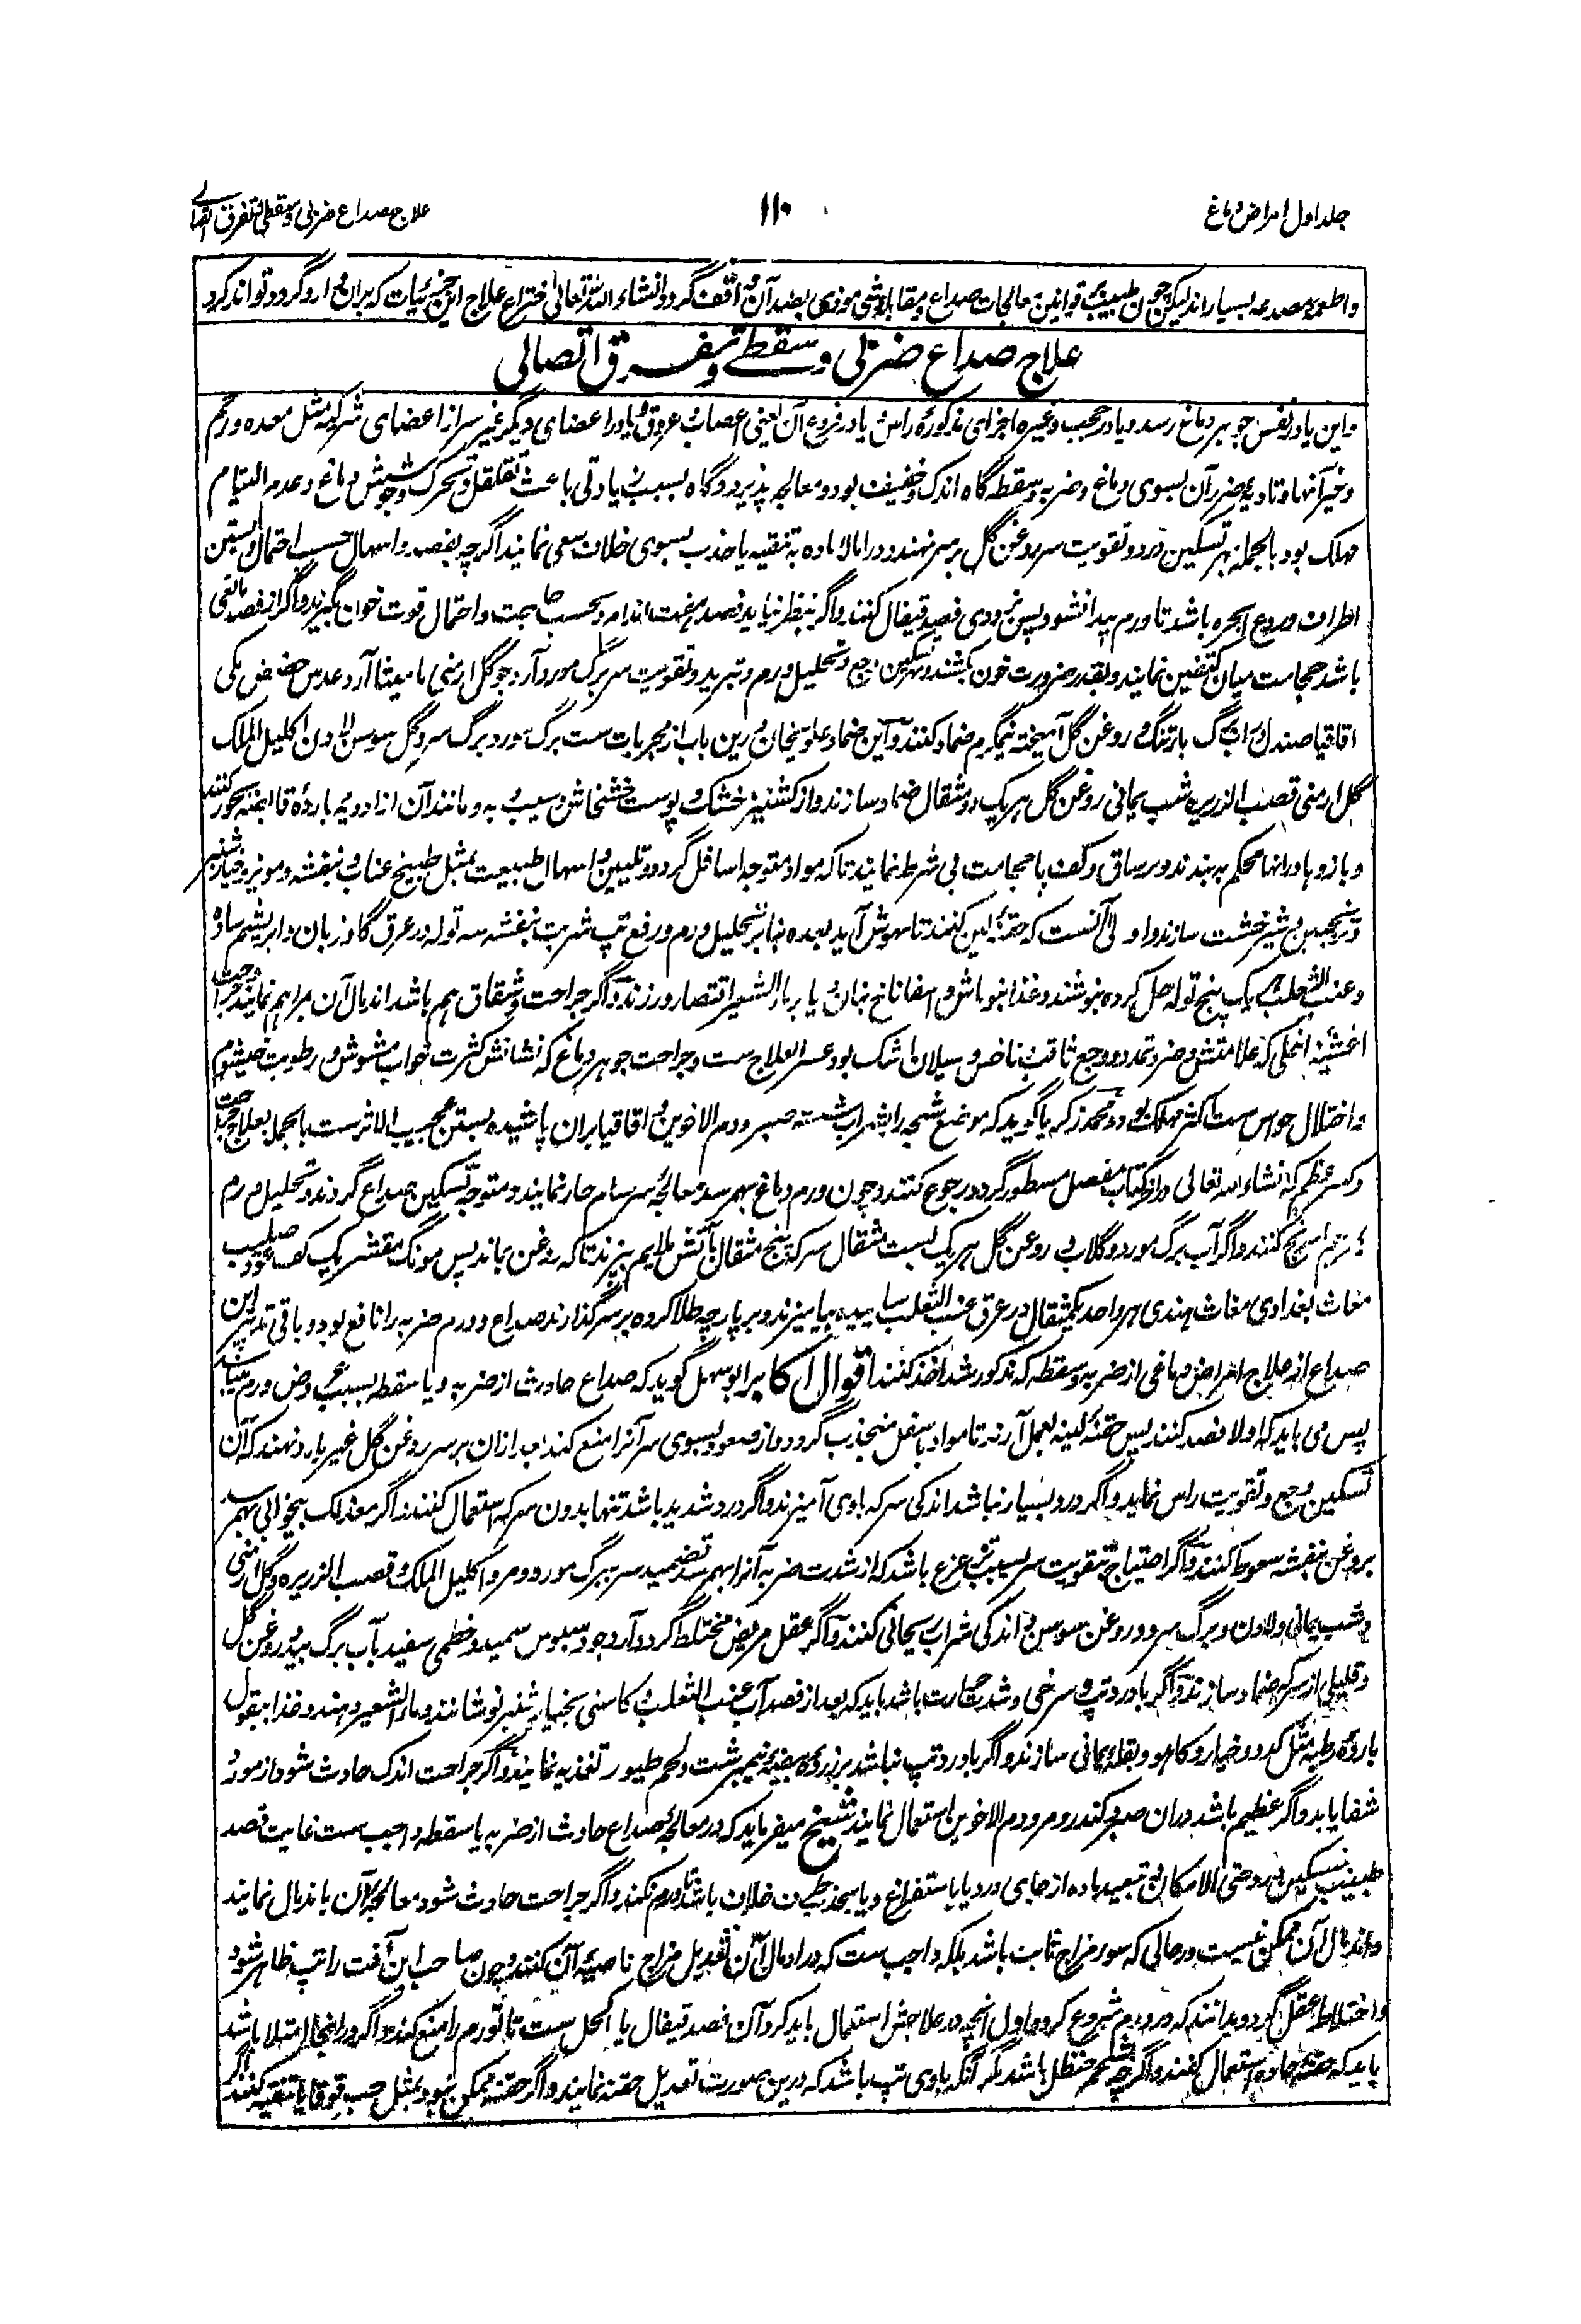 جلد اول امراض دماغ
۱۱۰
علاج صداع ضربی و سقطی و تفرق اتصالی
و اطعمه مصدعه بسیار اند لیکن چون طبیب بر قوانین معالجات صداع و مقابله شی موذی بضد آن واقف گردد انشاء الله تعالی اختراع علاج این جزئیات که بران وارد گردد تواند کرد
علاج صداع ضربی و سقطی و تفرق اتصالی
و این یا در نفس جوهر دماغ رسد و یا در حجب و غیره اجزای مذکوره راس و یا در فروع آن یعنی اعصاب و عروق و یا در اعضای دیگر غیر سر از اعضای شرکیه مثل معده و رحم
و غیر آنها و تادیه ضرر آن بسوی دماغ و ضربه و سقطه گاه اندک و خفیف بود و معالجه پذیرد و گاه بسبب زیادتی باعث تقلقل و تحرک و جوشش دماغ و عدم التیام
مهلک بود بالجمله بهر تسکین درد و تقویت سر روغن گل بر سر نهند و در اماله ماده به تنقیه یا جذب بسوی خلاف سعی نمایند اگرچه بفصد و اسهال حسب احتمال و بستن
اطراف و ردع ابخره باشد تا ورم پیدا نشود پس بزودی فصد قیفال کنند و اگر بنظر نیاید فصد هفت اندام و بحسب حاجت و احتمال قوت خون بگیرند و اگر از فصد مانعی
باشد حجامت میان کتفین نمایند و بقدر ضرورت خون بکشند و بهر تسکین وجع و تحلیل ورم و تبرید و تقویت سر برگ مورد آرد جو گل ارمنی مامیثا آرد عدس حضض مکی
اقاقیا صندل به آب برگ بارتنگ و روغن گل آمیخته نیمگرم ضماد کنند و این ضماد علویخان درین باب از مجربات ست برگ مورد برگ سرو گل سوسن لادن اکلیل الملک
گل ارمنی قصب الذریره شب یمانی روغن گل هر یک دو مثقال ضماد سازند و از کشنیز خشک و پوست خشخاش و سیب و به و مانند آن از ادویه بارده قابضه بخور کنند
و بازوها و رانها محکم به بندند و بر ساق و کف پا حجامت بی شرط نمایند تا که مواد متوجه اسافل گردد و تلیین و اسهال طبیعت بمثل طبیخ عناب و بنفشه و مویز و خیارشنبر
و ترنجبین و شیرخشت سازند و اولی آنست که حقنه لین کنند تا بهوش آید بعده بنابر تحلیل ورم و رفع تپ شربت بنفشه سه توله در عرق گاوزبان و ابریشم ساده
و عنب الثعلب هر یک پنج توله حل کرده بنوشند و غذا نبو ماش و اسفاناخ بنان و یا بر ماء الشعیر اقتصار ورزند و اگر جراحت و شقاق هم باشد اندمال آن بمراهم نمایند و جراحت
اغشیه انحلی که علامتش وخز و تمدد و وجع ثاقب ناخس و سیلان اشک بود عسر العلاج ست و جراحت جوهر دماغ که نشانش کثرت خواب مشوش و رطوبت خیشوم
و اختلال حواس ست اکثر مهلک بود و محمد زکریا گوید که موضع شجه را بشراب شسته صبر و دم الاخوین و اقاقیا بران پاشیده بستن عجیب الاثر ست بالجمله بعلاج جراحت
و کسر عظم که انشاء الله تعالی در آخر کتاب مفصل مسطور گردد رجوع کنند و چون ورم دماغ بهم رسد معالجه سرسام حار نمایند و متوجه تسکین صداع گردند و تحلیل ورم
کنند و اگر آب برگ مورد و گلاب و روغن گل هر یک بست مثقال سرکه پنج مثقال بآتش ملایم بپزند تا که روغن بماند پس مونگ مقشر یک کف عود صلیب
مغاث بغدادی مغاث هندی هر واحد یکمثقال در عرق عنب الثعلب سائیده بیامیزند و بر پارچه طلا کرده بر سر گذارند صداع و ورم ضربه را نافع بود و باقی تدبیر این
صداع از علاج امراض دماغی از ضربه و سقطه که مذکور شد اخذ کنند اقوال اکابر ابوسهل گوید که صداع حادث از ضربه و یا سقطه بسبب عروض ورم میباشد
پس می باید که اولا فصد کنند پس حقنه لینه بعمل آرند تا مواد باسفل منجذب گردد و از صعود بسوی سر آنرا منع کند بعد ازان بر سر روغن گل غیر بارد نهند که آن
تسکین وجع و تقویت راس نماید و اگر درد بسیار نباشد اندکی سرکه باوی آمیزند و اگر درد شدید باشد تنها بدون سرکه استعمال کنند و اگر معذلک بیخوابی بهم رسد
بروغن بنفشه سعوط کنند و اگر احتیاج تقویت سر بسبب تزعزع باشد که از شدت ضربه آنرا بهم رسد تضمید سر ببرگ مورد و مر و اکلیل الملک و قصب الذریره و گل ارمنی
و شب یمانی و لادن و برگ سرو و روغن سوسن و اندکی شراب ریحانی کنند و اگر عقل مریض مختلط گردد آرد جو و سبوس سمید و خطمی سفید بآب برگ بید و روغن گل
و قلیلی از سرکه ضماد سازند و اگر با درد تپ و سرخی و شدت حرارت باشد باید که بعد از فصد آب عنب الثعلب و کاسنی بخیارشنبر نوشانند و ماء الشعیر دهند و غذا ببقول
بارده رطبه مثل کدو و خیار و کاهو و بقله یمانی سازند و اگر با درد تپ نباشد بزرده بیضه نیمبرشت و لحم طیور تغذیه نمایند و اگر جراحت اندک حادث شود از مرور
شفا یابد و اگر عظیم باشد دران صبر و کندر و مر و دم الاخوین استعمال نمایند شیخ میفرماید که در معالجه صداع حادث از ضربه یا سقطه واجب ست غایت قصد
طبیب تسکین درد حتی الامکان و تبعید ماده از جای درد یا باستفراغ و یا بجذب بطرف خلاف باشد تا ورم نکند و اگر جراحت حادث شود معالجه آن باندمال نمایند
و اندمال آن ممکن نیست در حالی که سوء مزاج ثابت باشد بلکه واجب ست که در ادمال آن تعدیل مزاج ناحیه آن کنند و چون صاحب این آفت را تپ ظاهر شود
و اختلاط عقل گردد بدانند که در ورم شروع کرد و اول انچه در علاجش استعمال باید کرد آن فصد قیفال یا اکحل ست تا تورم را منع کند و اگر درانجا امتلا باشد
باید که حقنه حاده استعمال کنند و اگرچه بشحم حنظل باشد مگر آنکه باوی تپ باشد که درین صورت تعدیل حقنه نمایند و اگر حقنه ممکن نبود بمثل حب قوقایا تنقیه کنند اگر